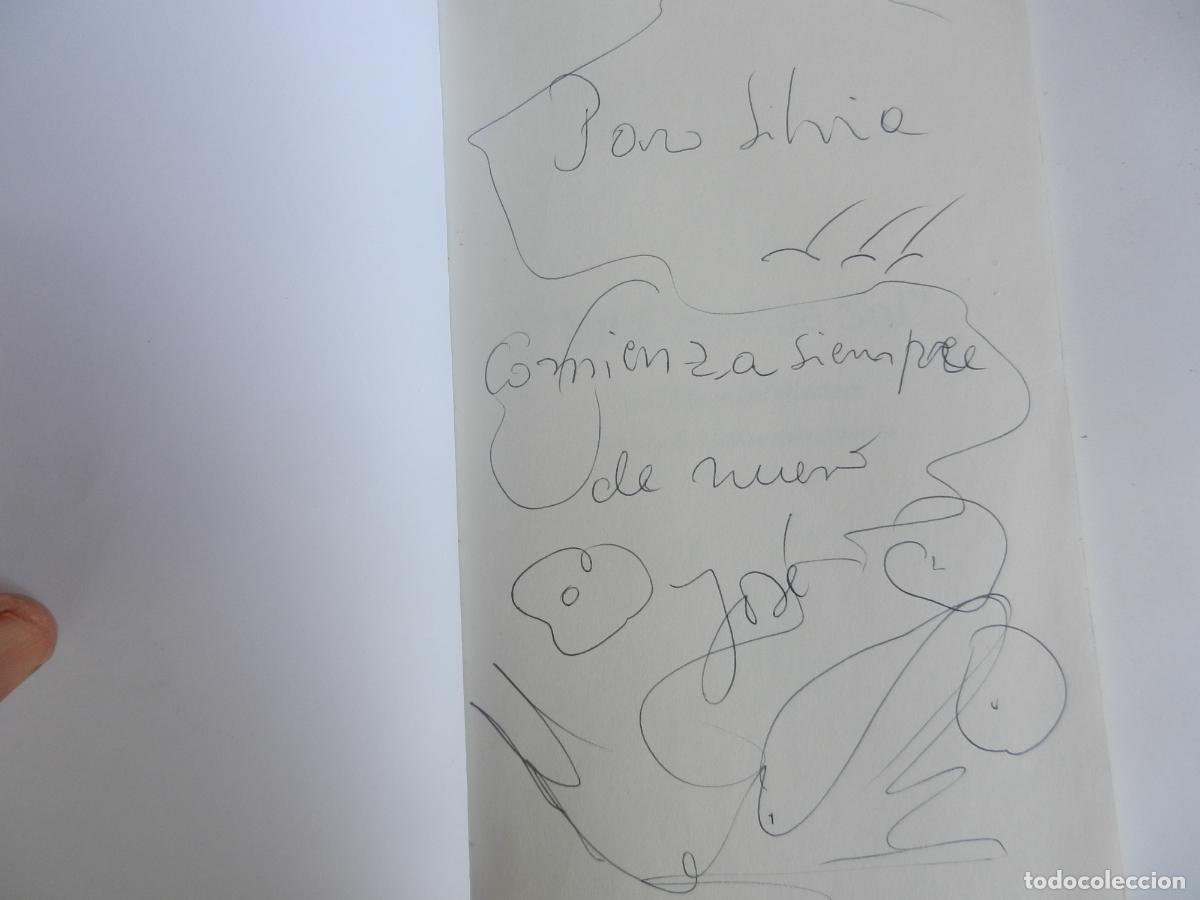 Para Silvia
Comienza siempre
de nuevo
José
todocoleccion